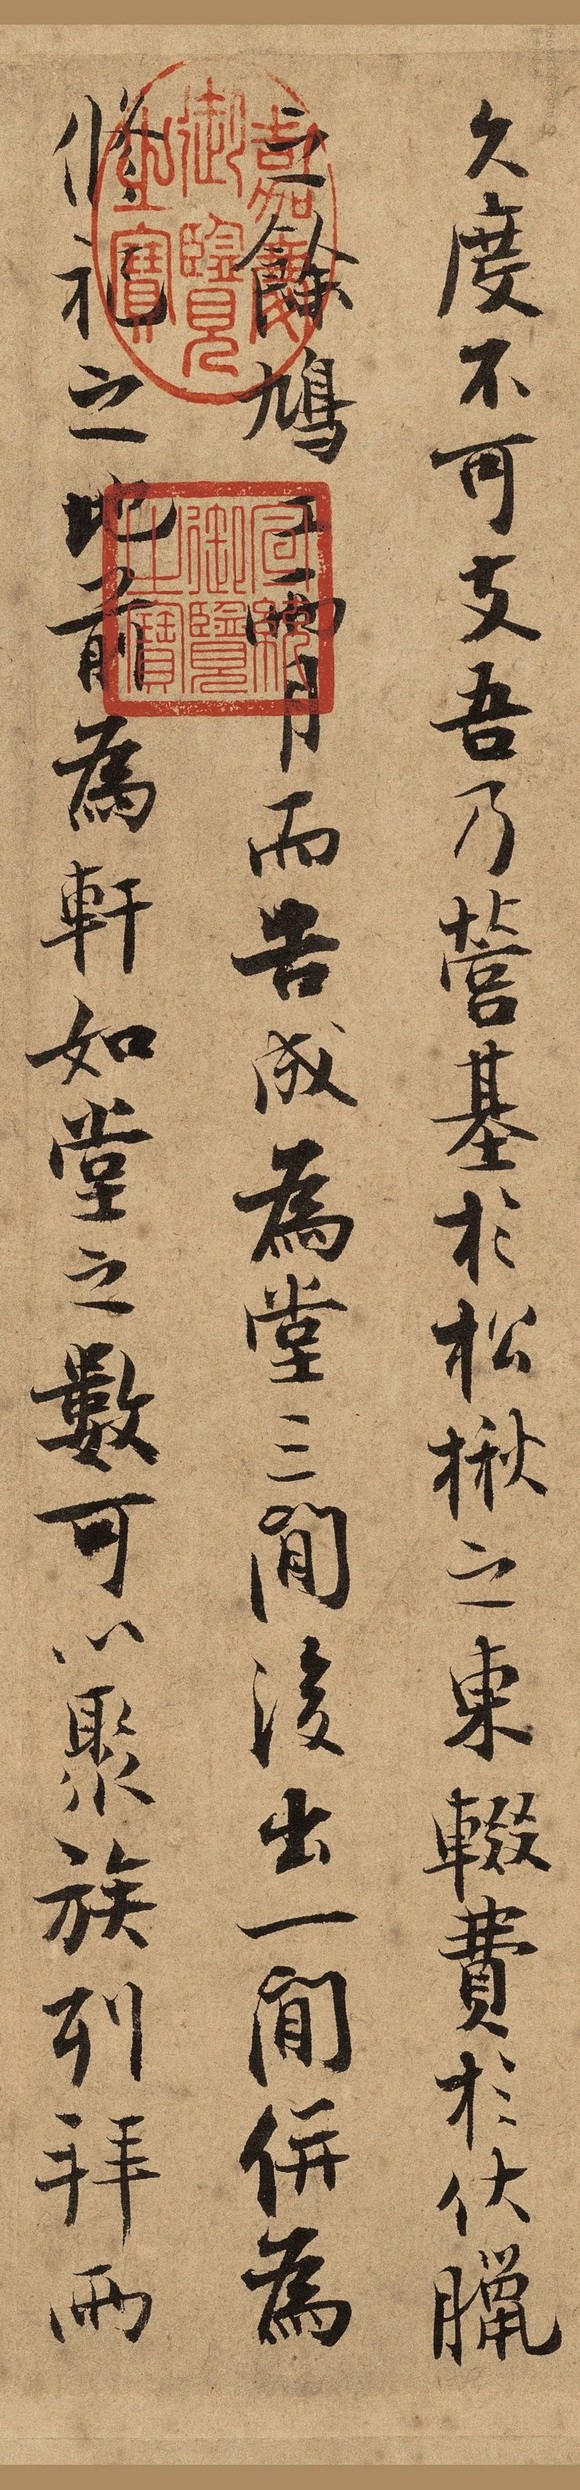 久度不可支吾乃營基於松楸之東輟費於伏臘
之餘鳩工兩月而告成為堂三間後出一間併為
修祀之地前為軒如堂之數可以聚族列拜兩
嘉慶御覽之寶
宣統御覽之寶